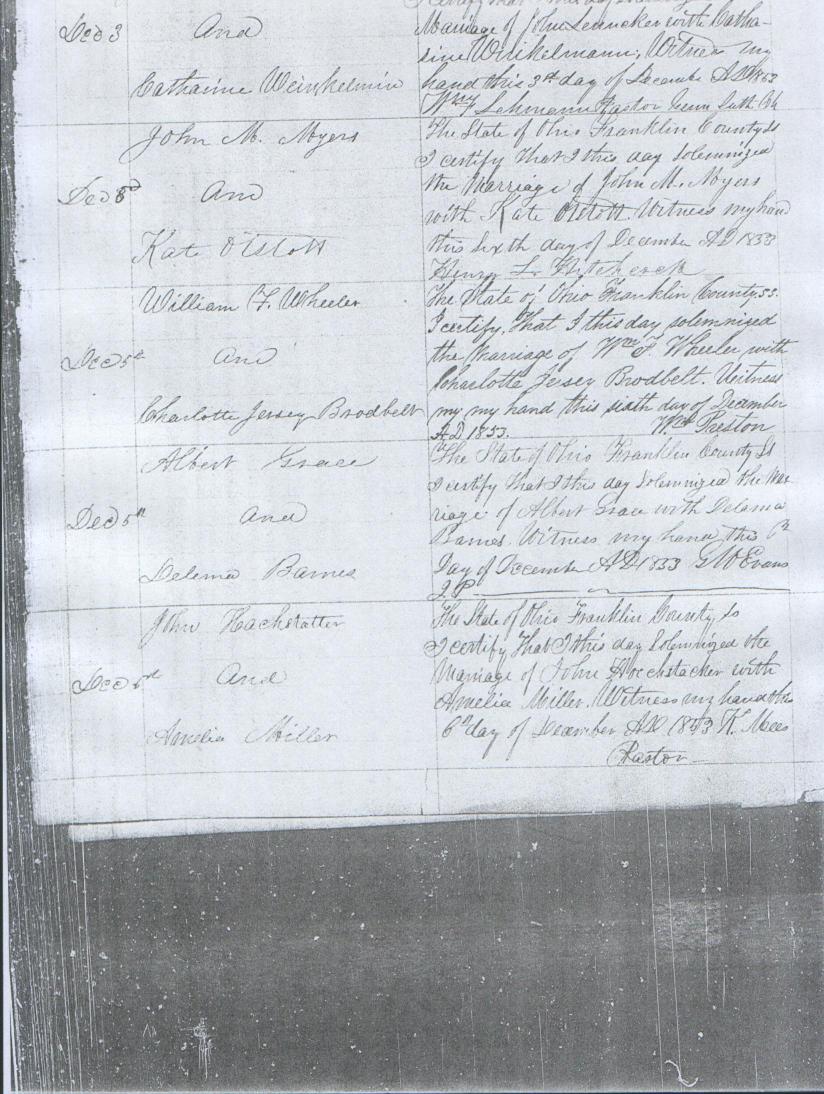 I certify that I this day
Dec 3 And Marriage of John with Catha-
rine Winkelmann, Witness my
Catharine Weinkelmin hand this 3d day of December AD 1853
Wm F Lehmann Pastor Luth Ch
John M. Myers The State of Ohio Franklin County Ss
I certify That I this day Solemnized
Dec And the Marriage of John M. Myers
with Kate Otstott. Witness my hand
Kate Otstott this sixth day of December AD 1853
Henry L. Hitchcock
William F. Wheeler The State of Ohio Franklin County ss.
I certify, That I this day solemnized
And the Marriage of Wm F Wheeler with
Charlotte Jersey Brodbelt. Witness
Charlotte Jersey Brodbelt my my hand this sixth day of December
AD 1853. Wm Preston
Albert Grace The State of Ohio Franklin County Ss
I certify that I this day Solemnized the Mar
And riage of Albert Grace with Delema
Barnes. Witness my hand this
Delema Barnes Day of December AD 1853 G W Evans
J P
John Hachstatter The State of Ohio Franklin County, Ss
I certify That I this day Solemnized the
And Marriage of John Hockstacker with
Amelia Miller. Witness my hand this
Amelia Miller 6th day of December AD 1853 K. Mees
Pastor